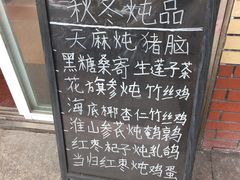 秋冬炖品
天麻炖猪脑
黑糖桑寄生莲子茶
花旗参炖竹丝鸡
海底椰杏仁竹丝鸡
淮山参芪炖鹌鹑
红枣杞子炖乳鸽
当归红枣炖鸡蛋